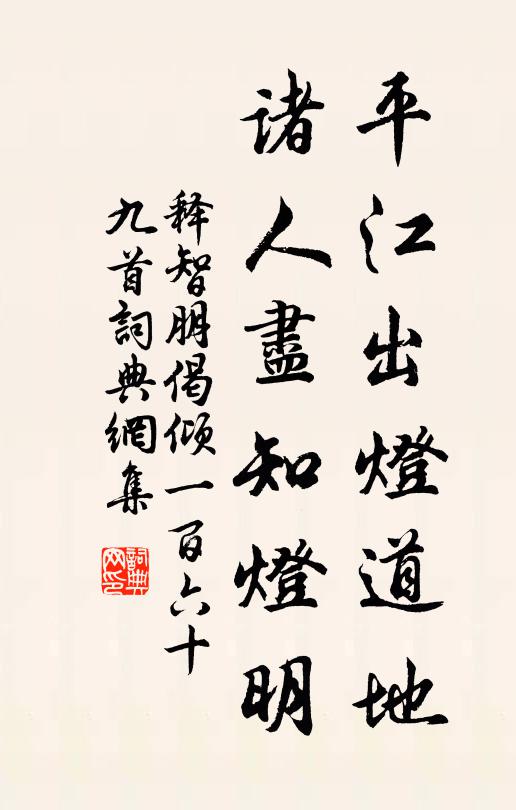 平江出燈道地
諸人盡知燈明
释智朋偈倾一百六十
九首詞典網集
詞典網印